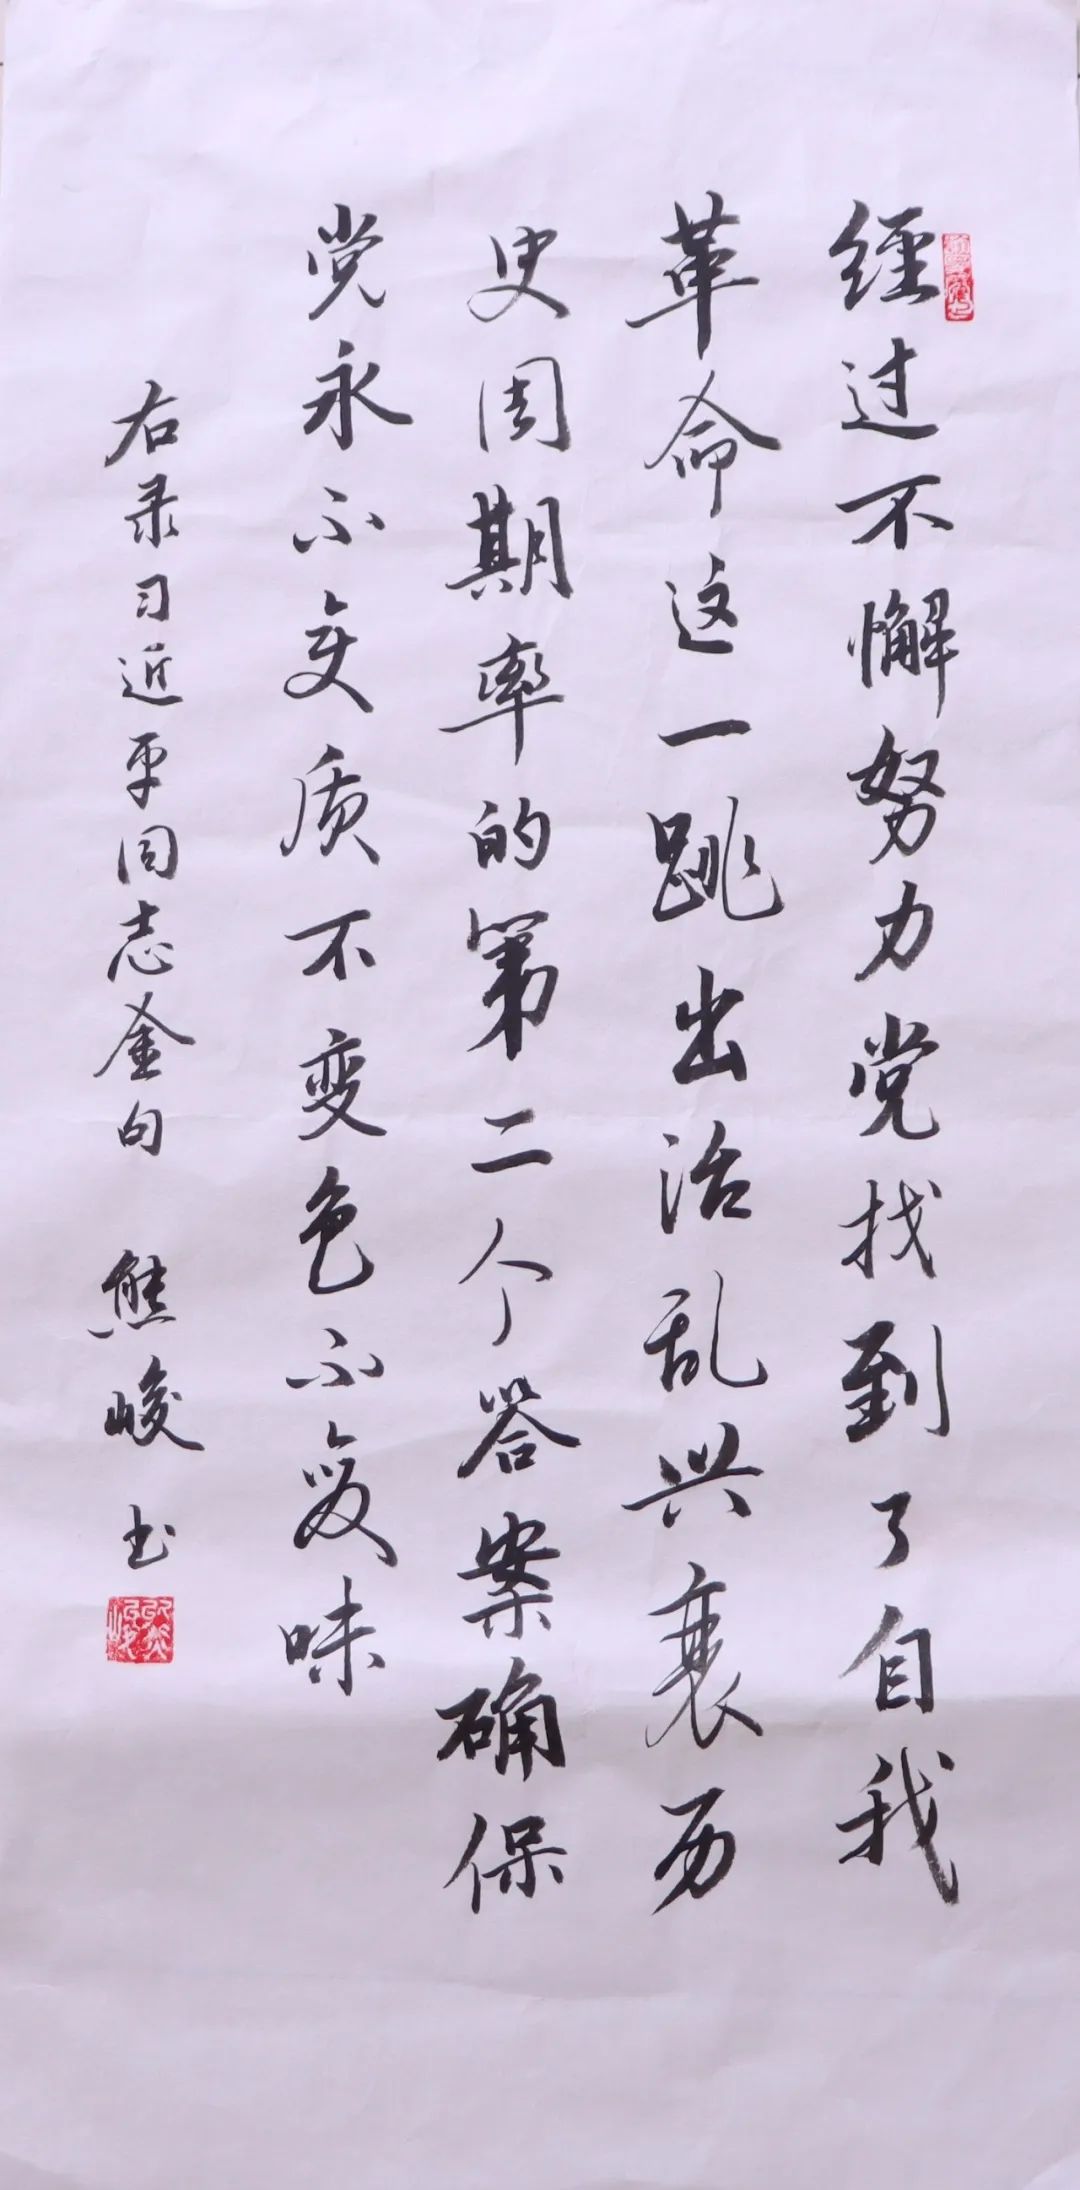 经过不懈努力党找到了自我
革命这一跳出治乱兴衰历
史周期率的第二个答案确保
党永不变质不变色不变味
右录习近平同志金句 熊峻书